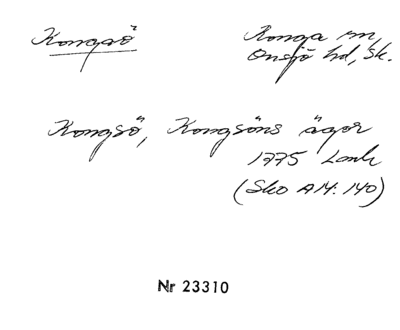 Kongsö
Konga sn,
Onsjö hd, Sk.
Kongsö, Kongsöns ägor
1775 Lantm
(Sko A14:140)
Nr 23310